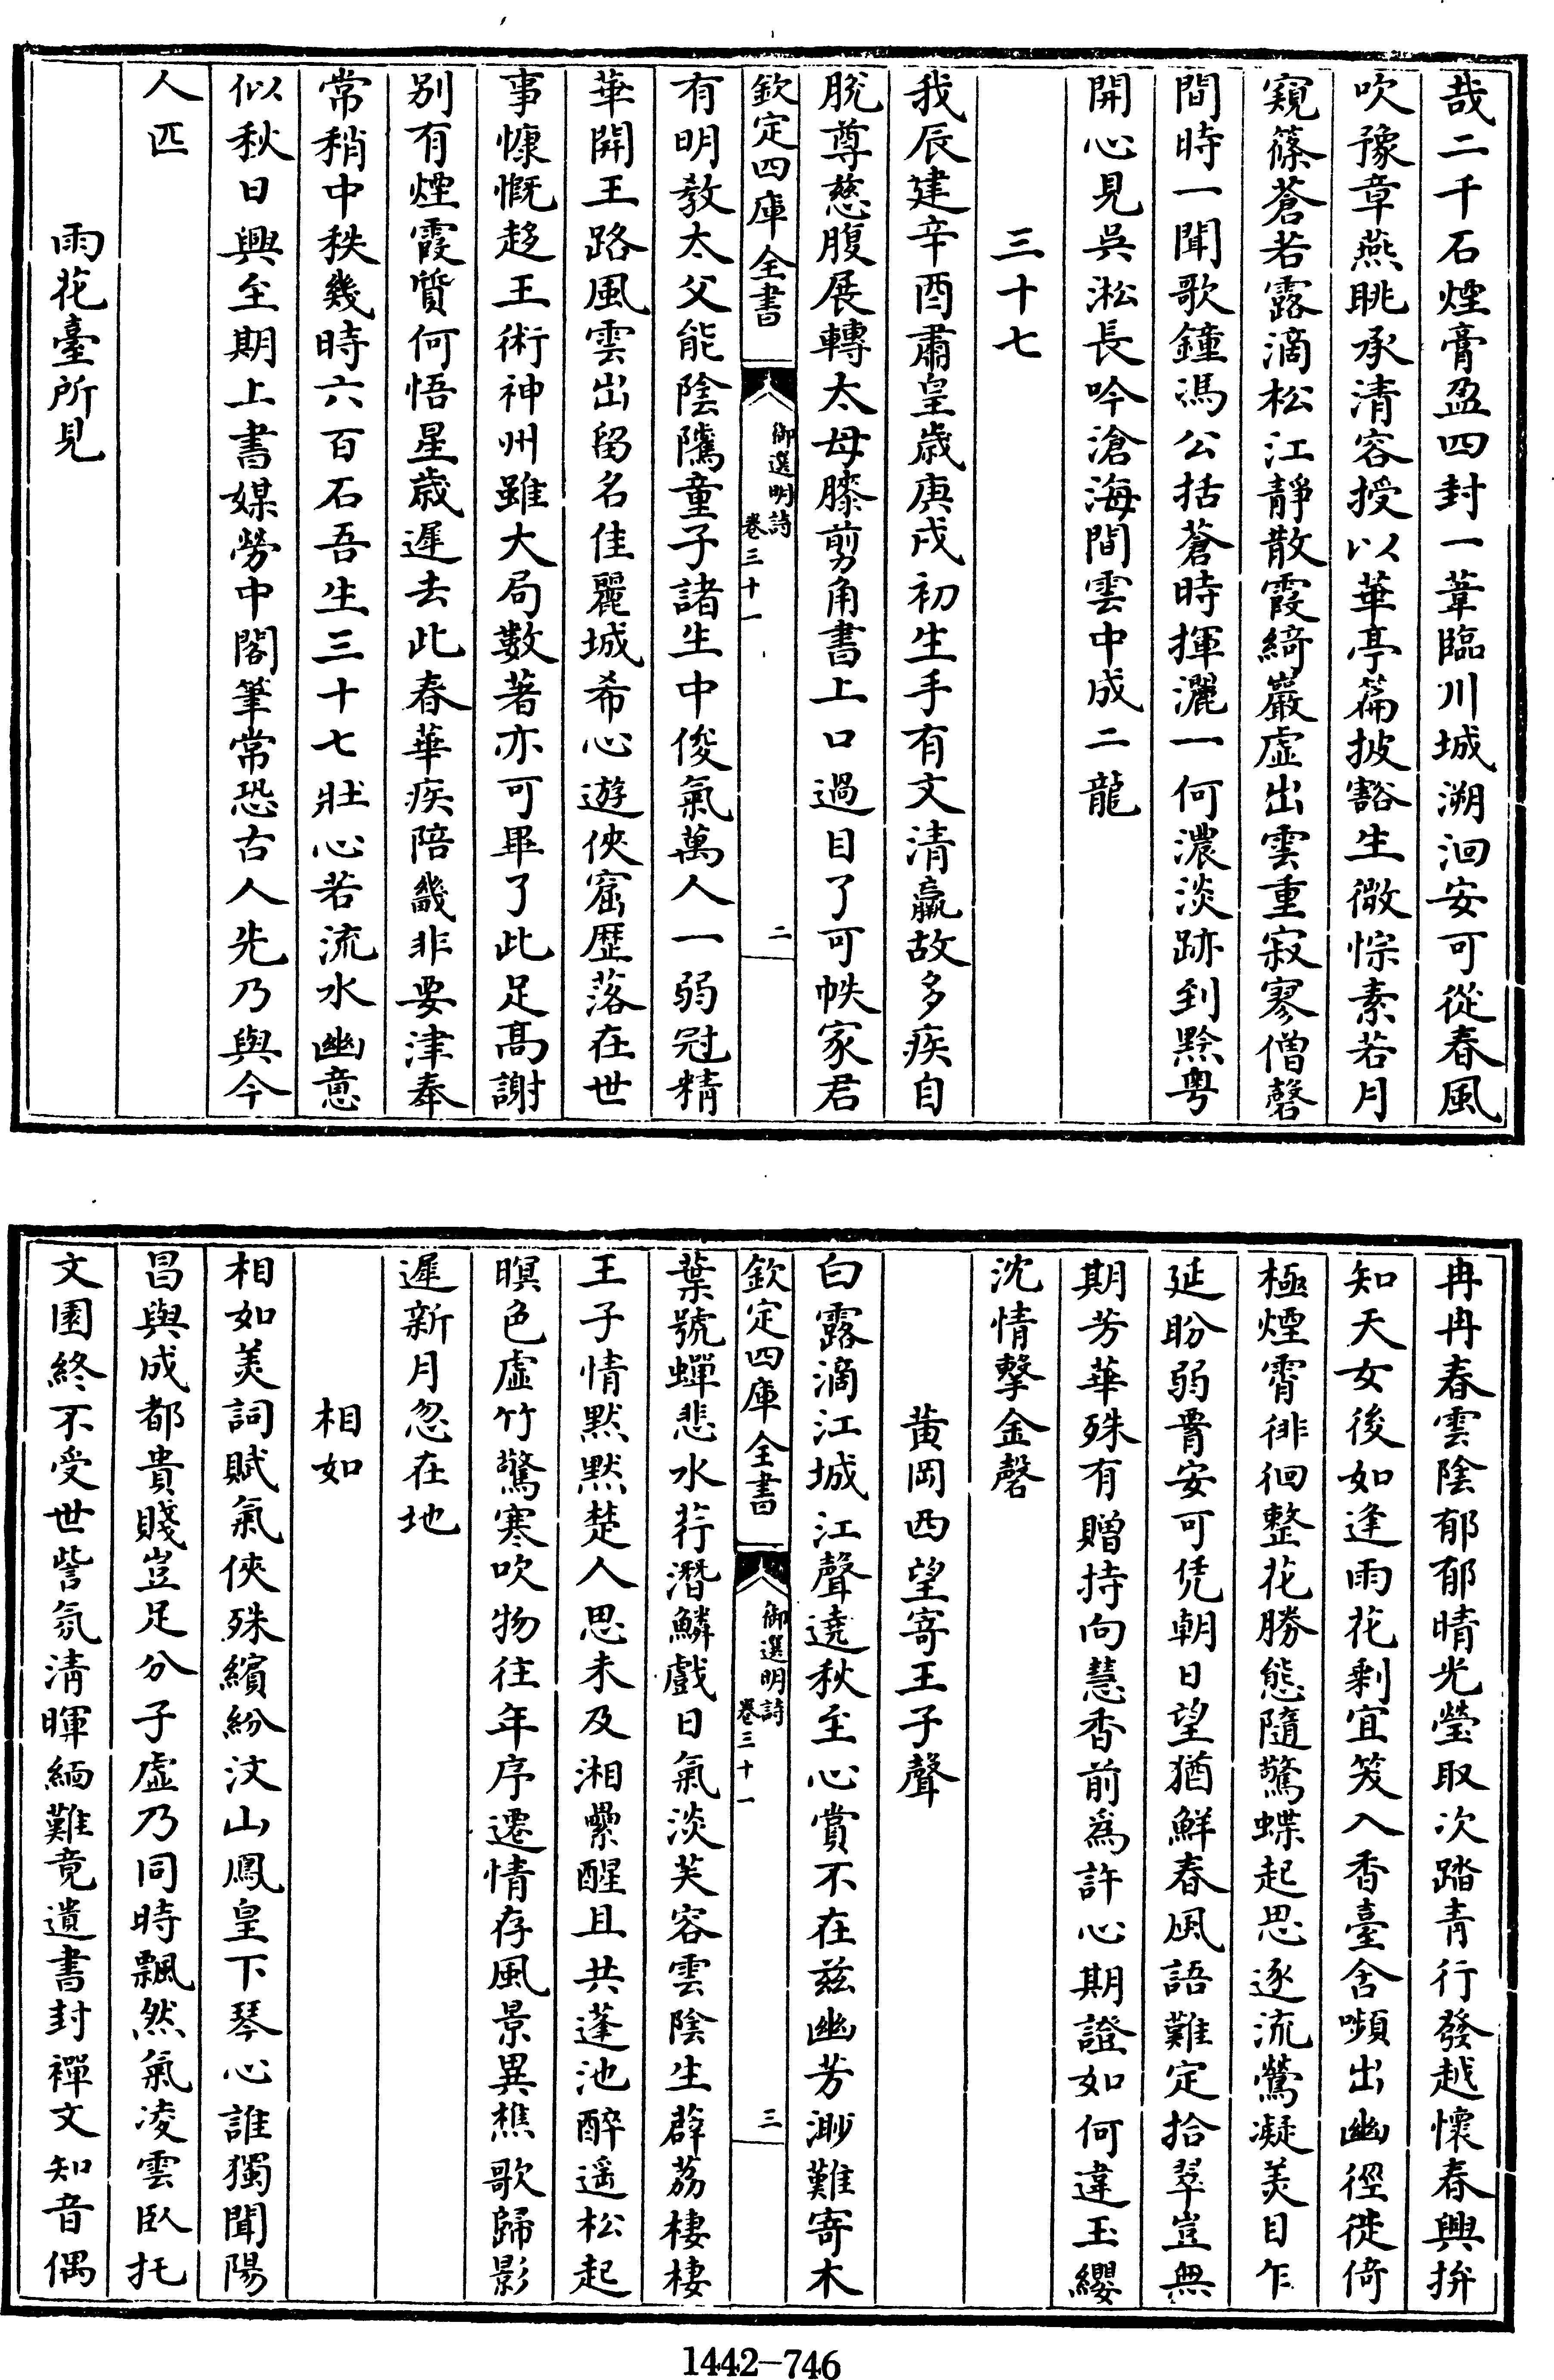 哉二千石煙膏盈四封一葦臨川城溯洄安可從春風
吹豫章燕眺承清容授以華亭篇披豁生微悰素若月
窺篠蒼若露滴松江靜散霞綺巖虛出雲重寂寥僧磬
間時一聞歌鐘馮公括蒼時揮灑一何濃淡跡到黔粤
開心見吳淞長吟滄海間雲中成二龍
三十七
我辰建辛酉肅皇歲庚戌初生手有文清羸故多疾自
脫尊慈腹展轉太母膝剪角書上口過目了可帙家君
欽定四庫全書
御選明詩
卷三十一
二
有明教太父能陰隲童子諸生中俊氣萬人一弱冠精
華開王路風雲出留名佳麗城希心遊俠窟歴落在世
事慷慨趍王術神州雖大局數著亦可畢了此足高謝
别有煙霞質何悟星歲遲去此春華疾陪畿非要津奉
常稍中秩幾時六百石吾生三十七壯心若流水幽意
似秋日興至期上書媒勞中閣筆常恐古人先乃與今
人匹
雨花臺所見
冉冉春雲陰郁郁晴光瑩取次踏青行發越懷春興拚
知天女後如逢雨花剩宜笑入香臺含嚬出幽徑徙倚
極煙霄徘徊整花勝態隨驚蝶起思逐流鶯凝美目乍
延盼弱骨安可凭朝日望猶鮮春風語難定拾翠豈無
期芳華殊有贈持向慧香前為許心期證如何違玉纓
沈情擊金磬
黄岡西望寄王子聲
白露滴江城江聲遶秋至心賞不在兹幽芳渺難寄木
欽定四庫全書
御選明詩
卷三十一
三
葉號蟬悲水荇潛鱗戲日氣淡芙容雲陰生薜荔棲棲
王子情默默楚人思未及湘纍醒且共蓬池醉遥松起
暝色虛竹驚寒吹物往年序遷情存風景異樵歌歸影
遲新月忽在地
相如
相如美詞賦氣俠殊繽紛汶山鳳皇下琴心誰獨聞陽
昌與成都貴賤豈足分子虛乃同時飄然氣凌雲臥托
文園終不受世訾氛淸暉緬難竟遺書封禪文知音偶
1442—746